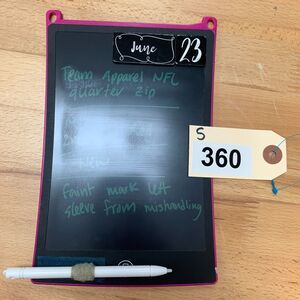 June 23
Team Apparel NFL
quarter zip
New
faint mark left
sleeve from mishandling
S
360